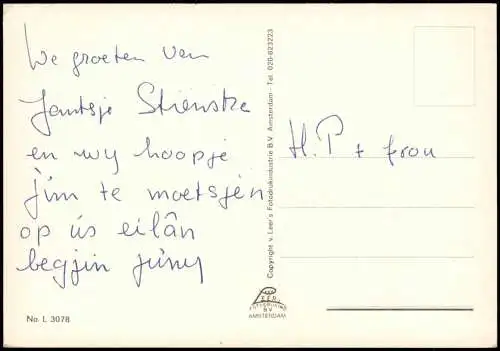 We groeten van
Jantsje Stienstra
en wy hoopje
jim te moetsjen
op ús eilân
begjin juny
H.P + frou
Copyright v. Leer's Fotodrukindustrie B.V. Amsterdam - Tel. 020-823223
v. LEER'S
FOTODRUKIND.
B.V.
AMSTERDAM
No. L 3078